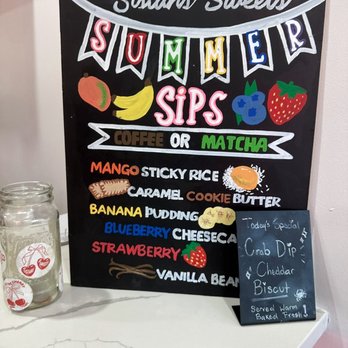 Sweets
SUMMER
SiPS
COFFEE OR MATCHA
MANGO STICKY RICE
CARAMEL COOKIE BUTTER
BANANA PUDDING
BLUEBERRY CHEESECA
STRAWBERRY
VANILLA BEAN
Today's Special
Crab Dip
Cheddar
Biscut
Served Warm
Baked Fresh!